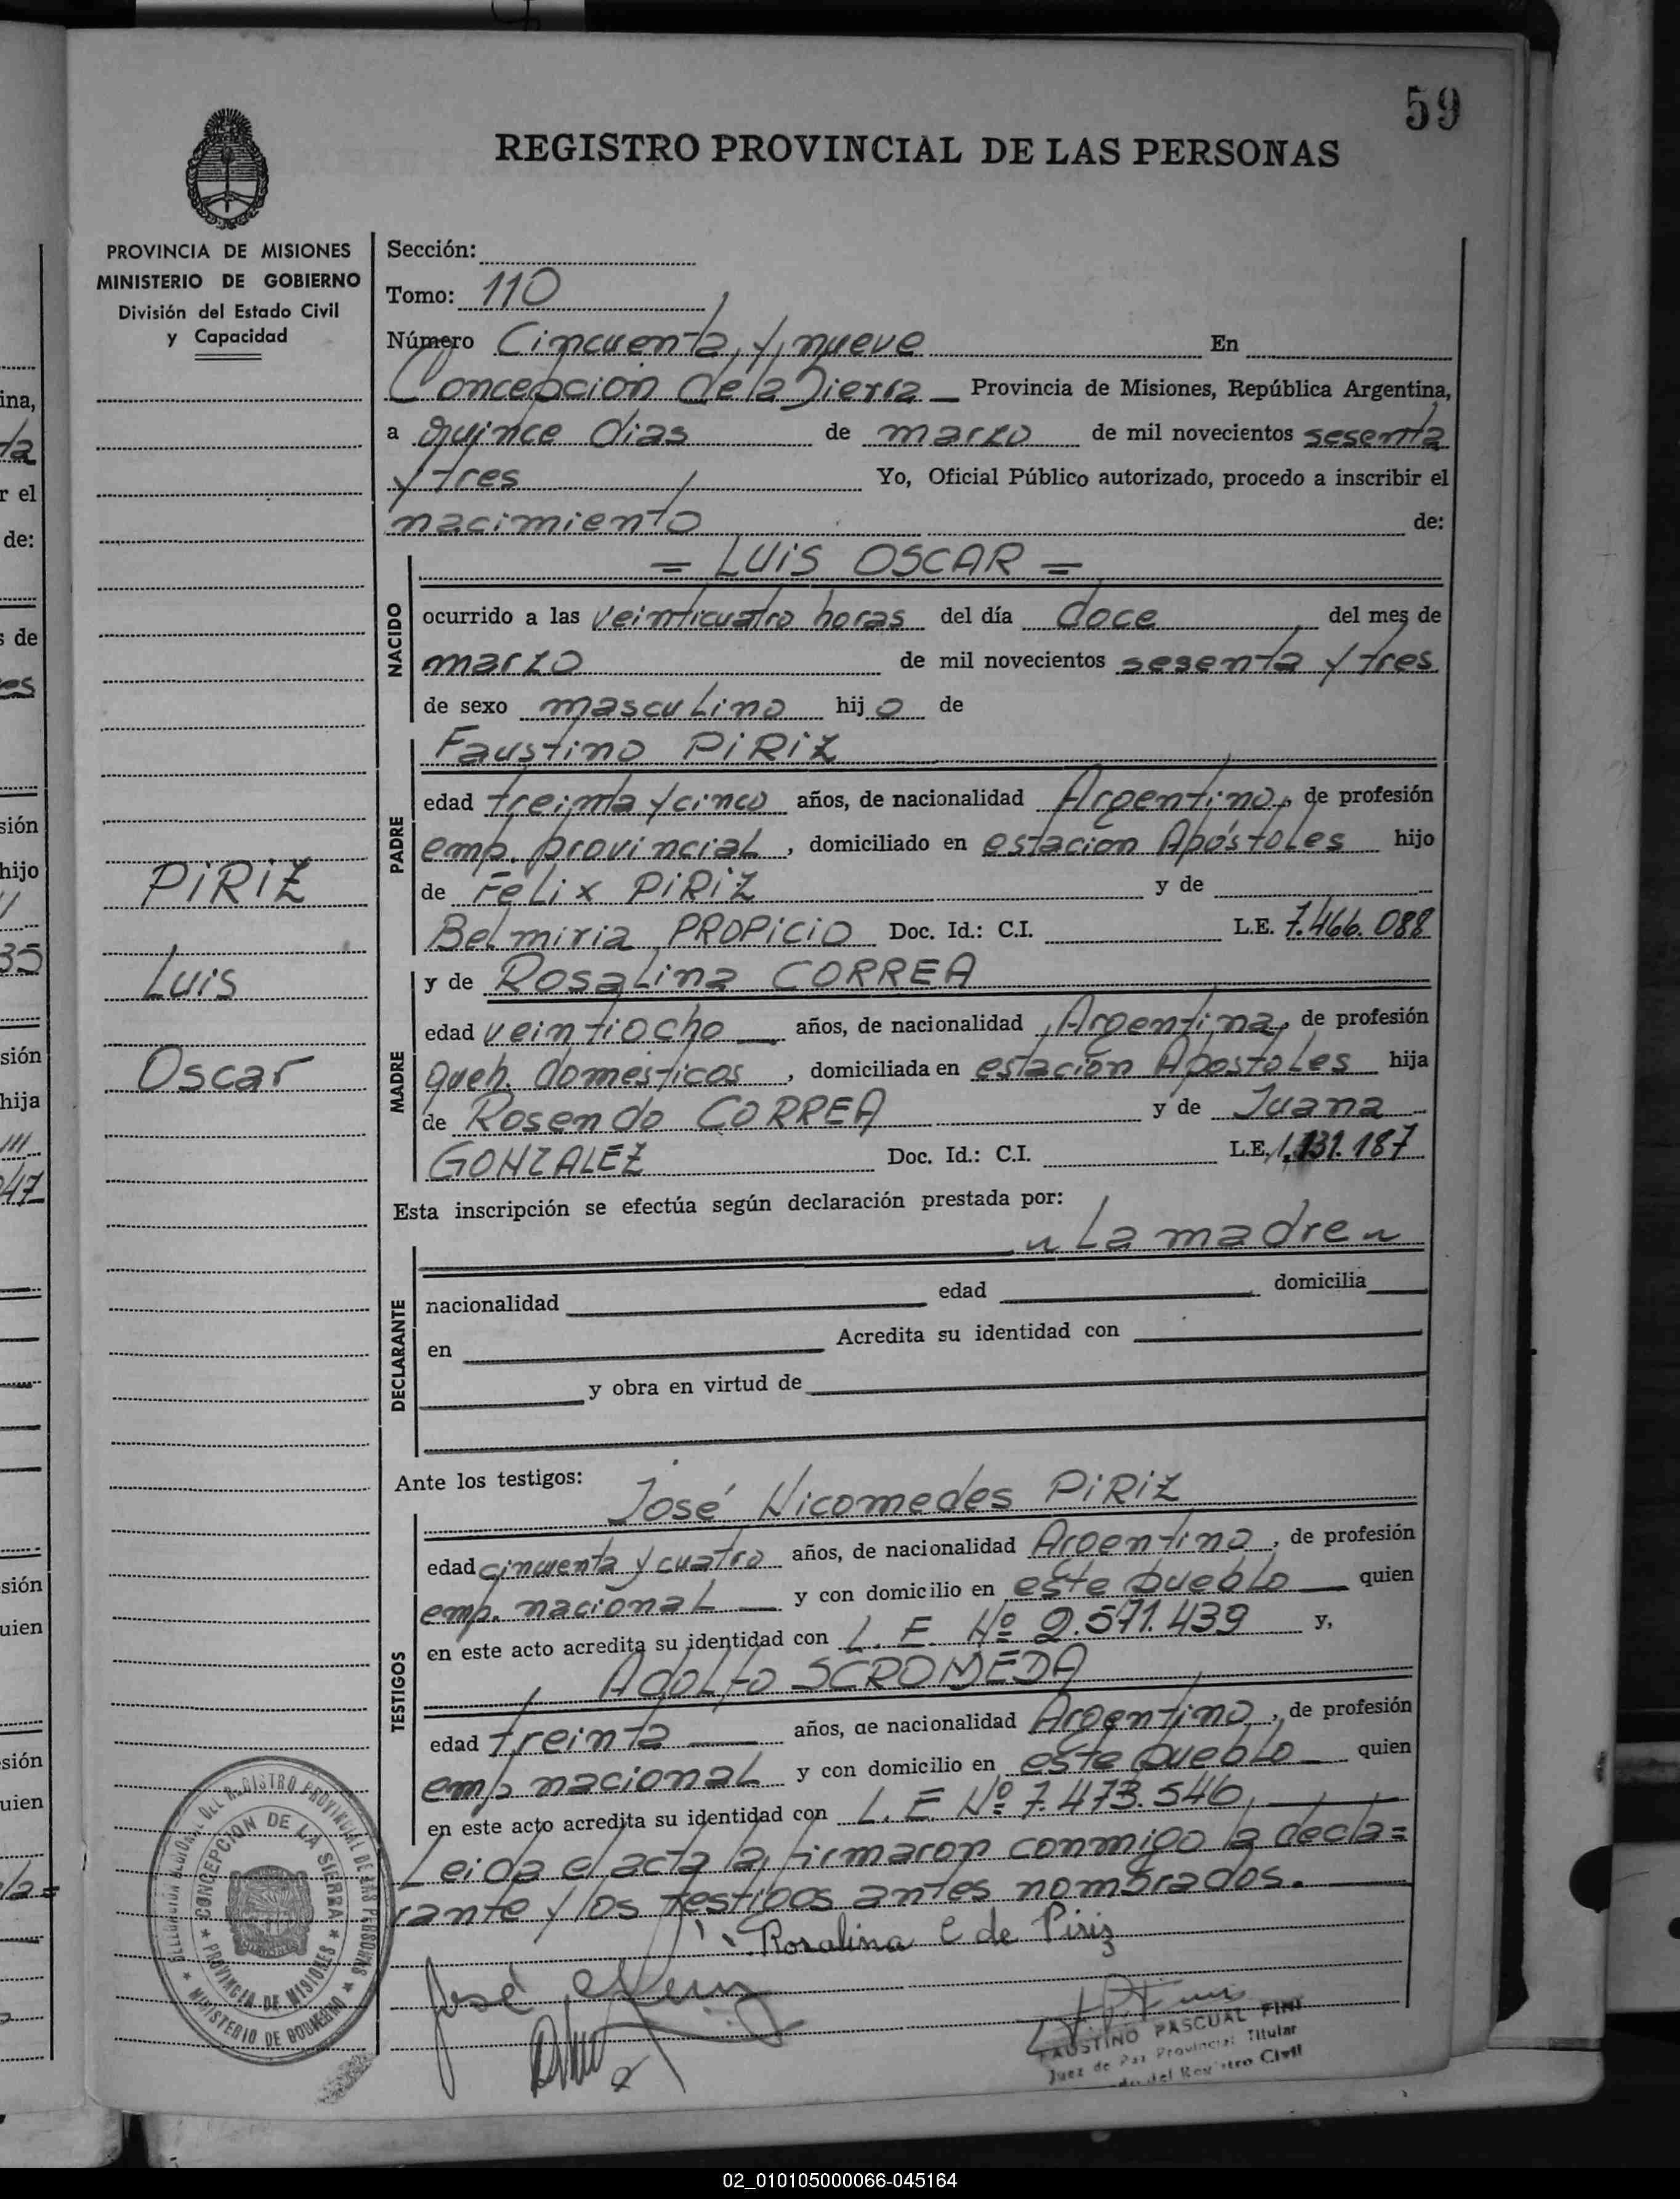 59
REGISTRO PROVINCIAL DE LAS PERSONAS
PROVINCIA DE MISIONES
MINISTERIO DE GOBIERNO
División del Estado Civil
y Capacidad
Sección:
Tomo: 110
Número Cincuenta y nueve En
Concepción de la Sierra Provincia de Misiones, República Argentina,
a quince dias de marzo de mil novecientos sesenta
y tres Yo, Oficial Público autorizado, procedo a inscribir el
nacimiento de:
= LUIS OSCAR =
NACIDO
ocurrido a las veinticuatro horas del día doce del mes de
marzo de mil novecientos sesenta y tres
de sexo masculino hijo de
Faustino PIRIZ
PADRE
edad treinta y cinco años, de nacionalidad Argentino, de profesión
emp. provincial, domiciliado en estación Apóstoles hijo
de Félix PIRIZ y de
Belmiria PROPICIO Doc. Id.: C.I. L.E. 7.466.088
y de Rosalina CORREA
MADRE
edad veintiocho años, de nacionalidad Argentina, de profesión
queh. domésticos, domiciliada en estación Apóstoles hija
de Rosendo CORREA y de Juana
GONZALEZ Doc. Id.: C.I. L.E. 1.131.187
PIRIZ
Luis
Oscar
Esta inscripción se efectúa según declaración prestada por:
La madre
DECLARANTE
nacionalidad edad domicilia
en Acredita su identidad con
y obra en virtud de
Ante los testigos:
José Nicomedes PIRIZ
TESTIGOS
edad cincuenta y cuatro años, de nacionalidad Argentino, de profesión
emp. nacional y con domicilio en este pueblo quien
en este acto acredita su identidad con L. E. Nº 2.571.439 y,
Adolfo SCROMEDA
edad treinta años, de nacionalidad Argentino, de profesión
emp nacional y con domicilio en este pueblo quien
en este acto acredita su identidad con L. E Nº 7.473.546,
Leida el acta la firmaron conmigo la decla=
rante y los testigos antes nombrados.
Rosalina C de Piriz
José
FAUSTINO PASCUAL FINI
Juez de Paz Provincial Titular
del Registro Civil
DELEGACIÓN REGIONAL DEL REGISTRO PROVINCIAL DE LAS PERSONAS
MINISTERIO DE GOBIERNO
CONCEPCION DE LA SIERRA
PROVINCIA DE MISIONES
02_010105000066-045164